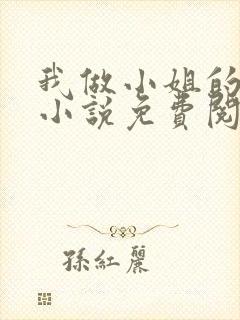 我做小姐的
小說免費閱
孫紅麗